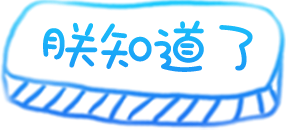 朕知道了